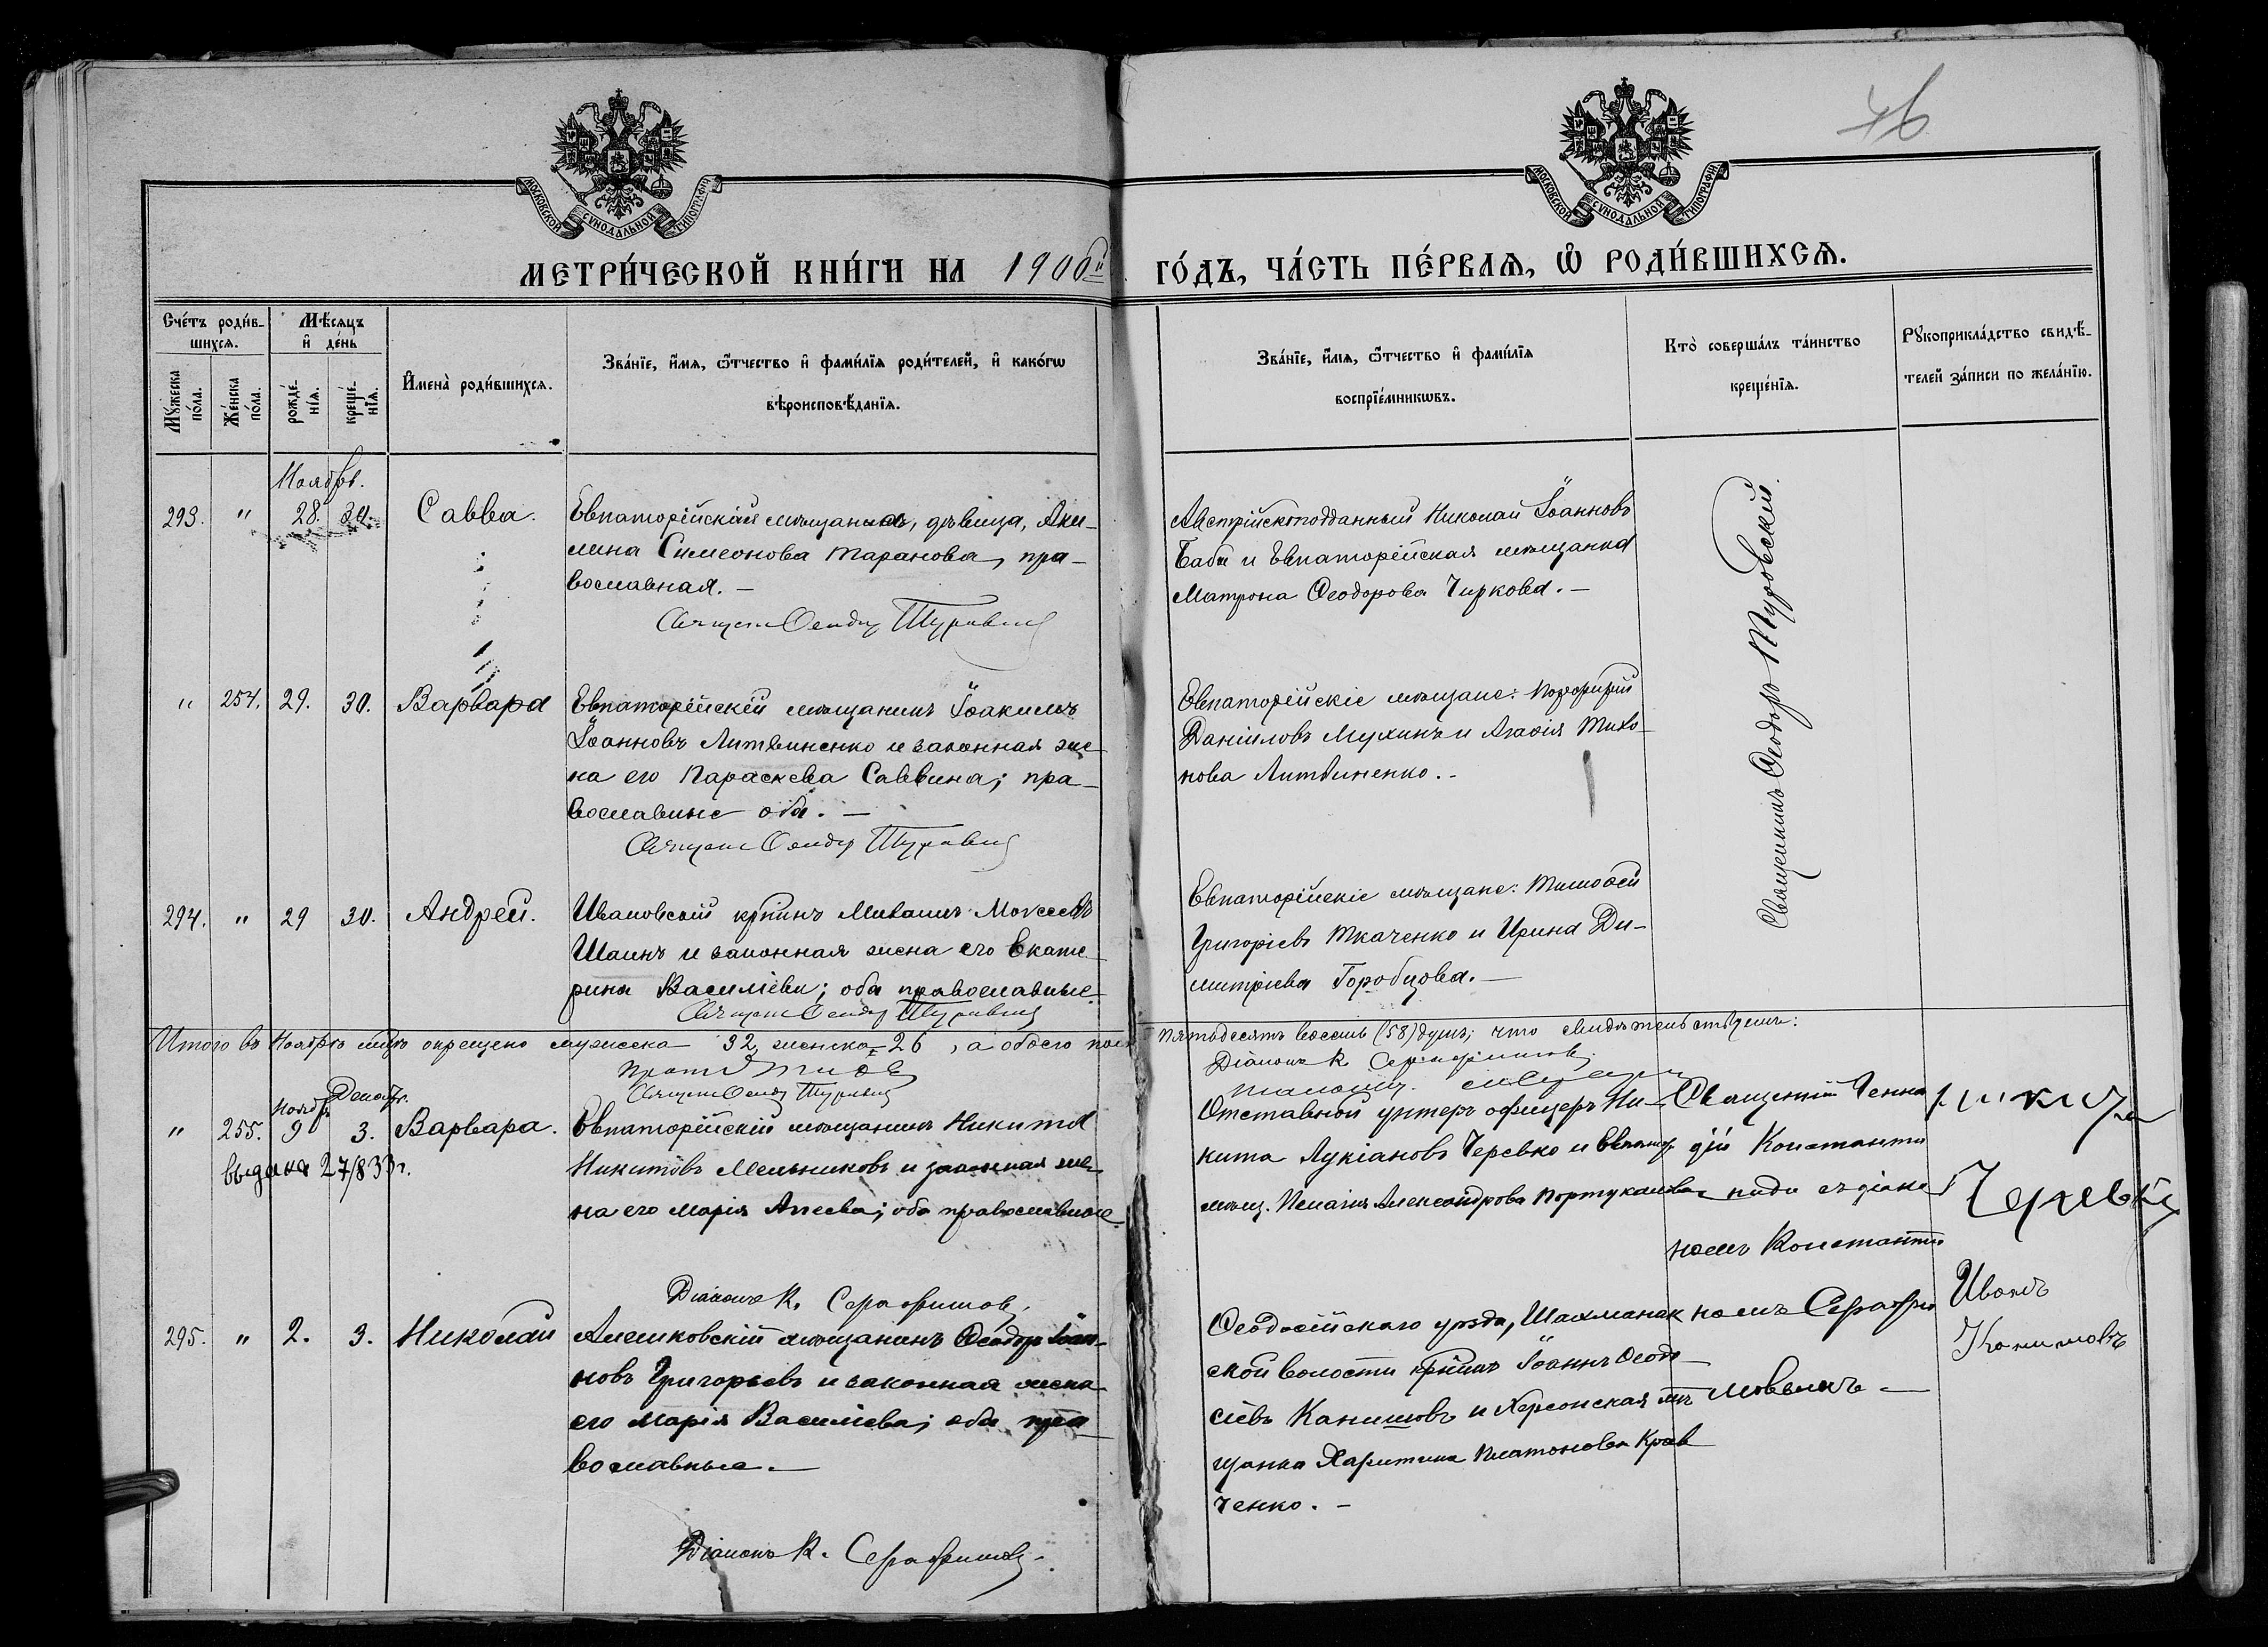 46
МОСКОВСКОЙ СѴНОДАЛЬНОЙ ТИПОГРАФІИ
МОСКОВСКОЙ СѴНОДАЛЬНОЙ ТИПОГРАФІИ
МЕТРИ́ЧЕСКОЙ КНИ́ГИ НА 1900й ГО́ДЪ, ЧА́СТЬ ПЕ́РВАѦ, Ѡ РОДИ́ВШИХСѦ.
Сче́тъ роди́в-
шихсѧ.
Мꙋжеска по́ла.
Же́нска по́ла.
Мѣ́сѧцъ
и҆ де́нь
рожде́-
нїѧ.
креще́-
нїѧ.
И҆мена̀ роди́вшихсѧ.
Зва́нїе, и҆́мѧ, ѻ҆́тчество и҆ фами́лїѧ роди́телей, и҆ како́гѡ
вѣроисповѣ́данїѧ.
Зва́нїе, и҆́мѧ, ѻ҆́тчество и҆ фами́лїѧ
воспрїе́мникѡвъ.
Кто̀ соверша́лъ та́инство
креще́нїѧ.
Рꙋкоприкла́дство свидѣ́-
телей за́писи по жела́нїю.
Ноябрь.
293. " 28. 30. Савва.
Евпаторійская мѣщанка, дѣвица, Аки-
лина Симеонова Таранова, пра-
вославная. –
Священ Ѳеодор Туровскій
Австрійскоподданный Николай Іоанновъ
Баба и Евпаторійская мѣщанка
Матрона Ѳеодорова Чиркова. –
Священникъ Ѳеодоръ Туровскій.
" 254. 29. 30. Варвара
Евпаторійскій мѣщанинъ Іоакимъ
Іоанновъ Литвиненко и законная же-
на его Параскева Саввина; пра-
вославные оба. –
Священ Ѳеодор Туровскій
Евпаторійскіе мѣщане: Порфирій
Даніиловъ Мухинъ и Агаѳія Тихо-
нова Литвиненко. -
294. " 29 30. Андрей.
Ивановскій кр-нинъ Михаилъ Моисеевъ
Шаинъ и законная жена его Екате-
рина Василіева; оба православные
Священ Ѳеодор Туровскій
Евпаторійскіе мѣщане: Тимоѳей
Григоріевъ Ткаченко и Ирина Ди-
митріева Горобцова. –
Итого въ Ноябрѣ мцѣ окрещено мужеска 32, женска = 26, а обоего пола пятьдесятъ восемь (58) душъ; что свидѣтельствуемъ:
Священ Ѳеодор Туровскій
Діаконъ К. Серафимовъ.
Ноябр Декабрь.
" 255. 9 3. Варвара.
выдана 27/8 33 г.
Евпаторійскій мѣщанинъ Никита
Никитовъ Мельниковъ и законная же-
на его Марія Алеева; оба православные.
Діаконъ К. Серафимовъ.
Отставной унтеръ офицеръ Ни-
кита Лукіановъ Черевко и Евпатор.
мѣщ. Пелагія Александрова Портукалова
Священникъ Генна
дій Константи
ниди съ діако
номъ Константи
номъ Серафи
мовымъ –
Никита
Черевко
295. " 2. 3. Николай
Алешковскій мѣщанинъ Ѳеодоръ Іоан-
новъ Григорьевъ и законная жена
его Марія Василіева; оба пра-
вославные. –
Діаконъ К. Серафимовъ.
Ѳеодосійскаго уѣзда, Шахманай
ской волости кр-нинъ Іоаннъ Ѳеодо-
сіевъ Канишовъ и Херсонская мѣ
щанка Харитина Платонова Крав
ченко. –
Иванъ
Канишовъ